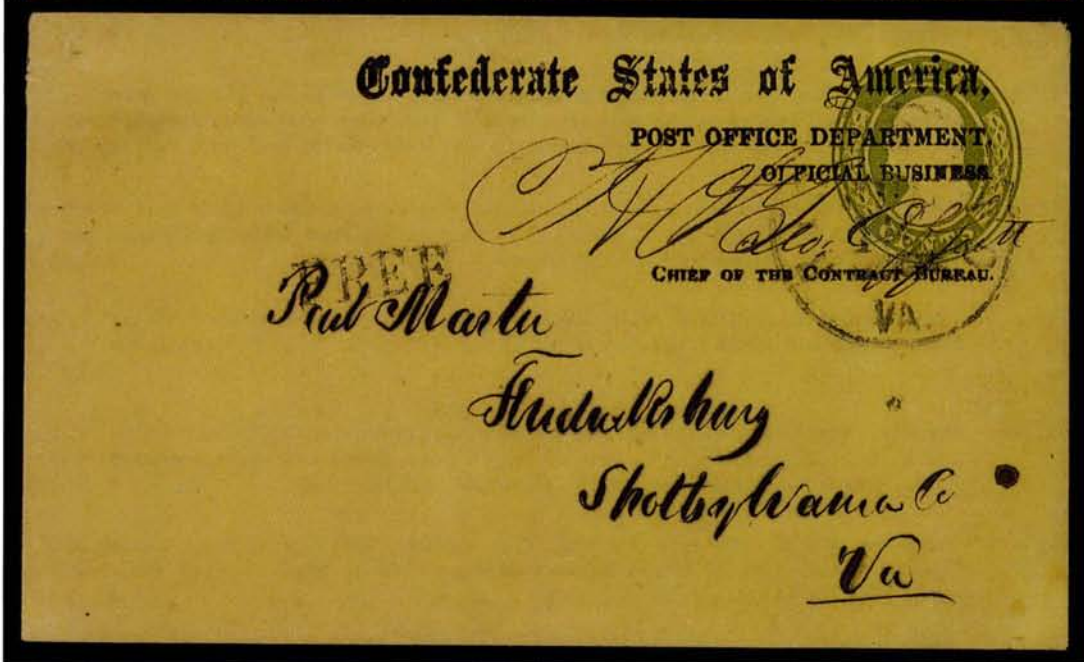 Confederate States of America,
POST OFFICE DEPARTMENT,
OFFICIAL BUSINESS.
CHIEF OF THE CONTRACT BUREAU.
FREE
VA.
Post Master
Fredericksburg
Spottsylvania Co
Va